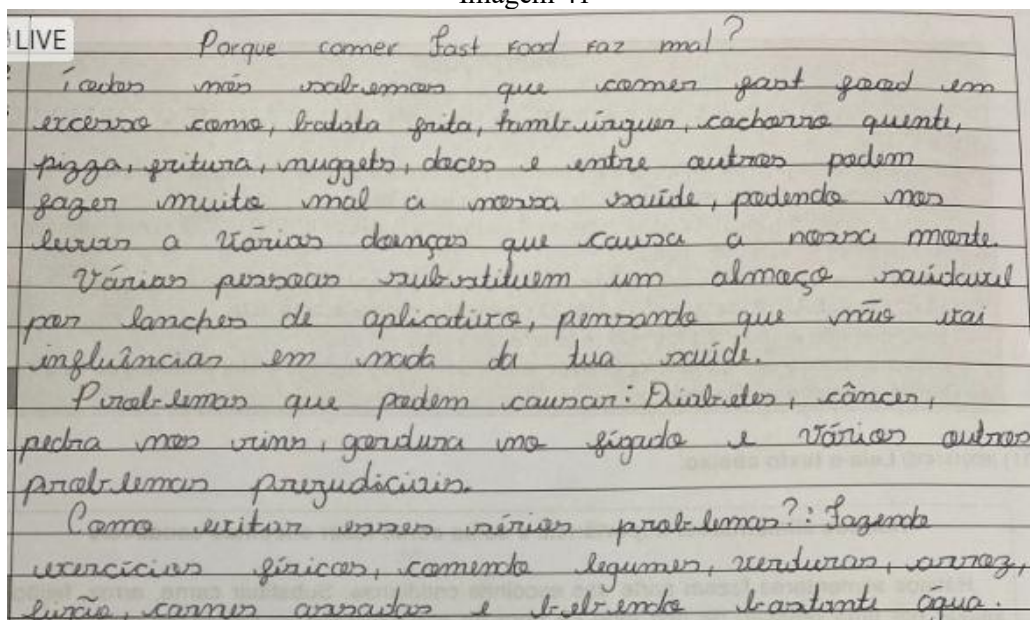 Imagem 41
LIVE
Porque comer fast food faz mal?
Todos nós sabemos que comer fast food em
excesso como, batata frita, hambúrguer, cachorro quente,
pizza, fritura, nuggets, doces e entre outros podem
fazer muito mal a nossa saúde, podendo nos
levar a várias doenças que causa a nossa morte.
Várias pessoas substituem um almoço saúdavel
por lanches de aplicativo, pensando que não vai
influências em nada da tua saúde.
Problemas que podem causar: Diabetes, câncer,
pedra nos rins, gordura no fígado e vários outros
problemas prejudiciais.
Como evitar esses sérios problemas?: Fazendo
exercícios físicos, comendo legumes, verduras, arroz,
carnes assadas e bebendo bastante água.